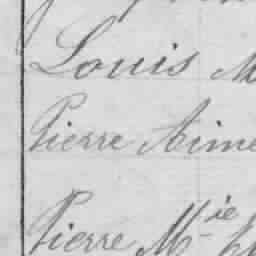 Louis M
Pierre Aime
Pierre Mie